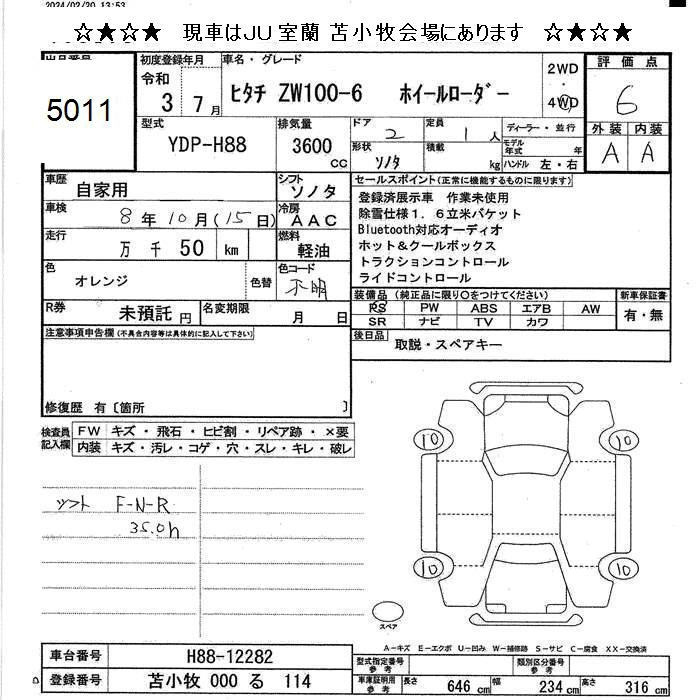 2024/02/20 13:53
☆★☆★ 現車はJU室蘭 苫小牧会場にあります ☆★☆★
5011
初度登録年月
令和
3 7月
車名・グレード
ヒタチ ZW100-6 ホイールローダー
2WD
・
4WD
評価点
6
外装 内装
A A
型式
YDP-H88
排気量
3600 cc
ドア 2
定員 1 人
ディーラー・並行
形状 ソノタ
積載 kg
モデル年式 年
ハンドル 左・右
車歴 自家用
シフト ソノタ
車検 8年10月(15日)
冷房 AAC
走行 万 千 50 km
燃料 軽油
色 オレンジ 色替
色コード 不明
R券 未預託 円
名変期限 月 日
セールスポイント(正常に機能するものに限ります)
登録済展示車 作業未使用
除雪仕様1.6立米バケット
Bluetooth対応オーディオ
ホット&クールボックス
トラクションコントロール
ライドコントロール
装備品 (純正品に限り○をつけてください)
新車保証書
PS PW ABS エアB AW
有・無
SR ナビ TV カワ
後日品 取説・スペアキー
注意事項申告欄(不具合内容等は具体的に記入して下さい)
修復歴 有〔箇所 〕
検査員記入欄
FW キズ・飛石・ヒビ割・リペア跡・×要
内装 キズ・汚レ・コゲ・穴・スレ・キレ・破レ
シフト F-N-R
35.0h
10 10
10 10
スペア
A－キズ E－エクボ U－凹み W－補修跡 S－サビ C－腐食 XX－交換済
車台番号 H88-12282
登録番号 苫小牧 000 る 114
型式指定番号 参考
類別区分番号 参考
車庫証明用 参考
長さ 646 cm
幅 234 cm
高さ 316 cm